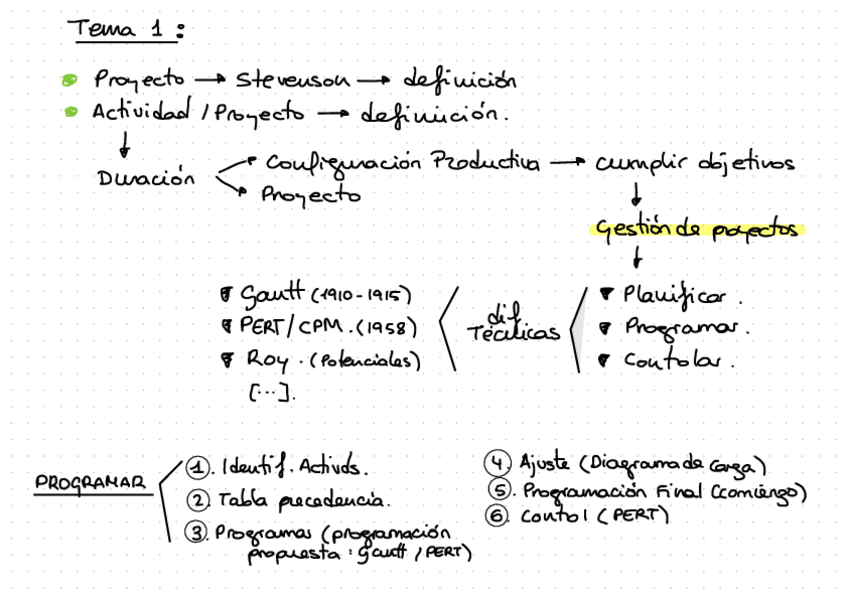 Tema 1 :
Proyecto → Stevenson → definición
Actividad / Proyecto → definición.
↓
Duración
Configuración Productiva → cumplir objetivos
Proyecto
↓
Gestión de proyectos
↓
Planificar.
Programar.
Controlar.
dif Técnicas
Gantt (1910-1915)
PERT/CPM. (1958)
Roy. (Potenciales)
[...].
PROGRAMAR
1. Identif. Activds.
2. Tabla precedencia.
3. Programas (programación
propuesta: gantt / PERT)
4. Ajuste (Diagrama de carga)
5. Programación Final (comienzo)
6. Control (PERT)